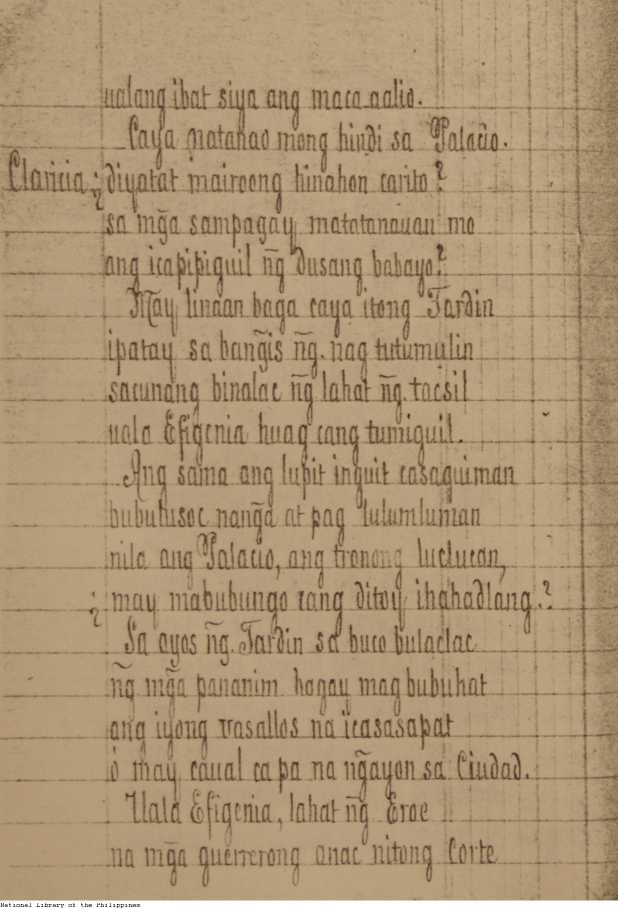 ualang ibat siya ang maca aalio.
Caya matanao mong hindi sa Palacio.
Claricia ¿diyatat mairoong hinahon carito?
sa mg̃a sampagay matatanauan mo
ang icapipiguil ñg dusang babayo?
May linaan baga caya itong Jardin
ipatay sa bang̃is ñg. nag tutumulin
sacunang binalac ñg lahat ñg. tacsil
uala Efigenia huag cang tumiguil.
Ang sama ang lupit inguit casaguiman
bubutusoc nang̃a at pag lulumluman
nila ang Palacio, ang tronong luclucan,
¿may mabubungo cang ditoy ihahadlang?
Sa ayos ñg. Jardin sa buco bulaclac
ñg mg̃a pananim hogay mag bubuhat
ang iyong vasallos na icasasapat
ó may caual ca pa na ng̃ayon sa Ciudad.
Uala Efigenia, lahat ñg Eroe
na mg̃a guerrerong anac nitong Corte
National Library of the Philippines